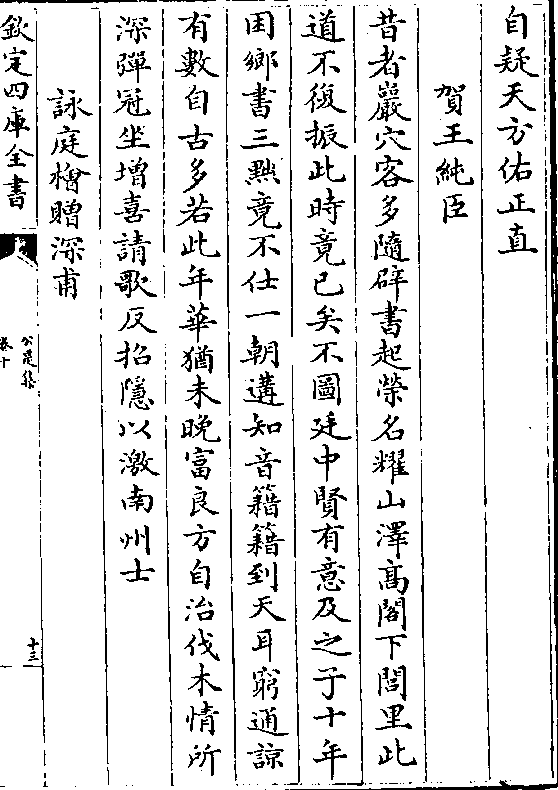 自疑天方佑正直
賀王純臣
昔者巖穴客多隨辟書起榮名耀山澤髙閣下閭里此
道不復振此時竟已矣不圖廷中賢有意及之子十年
困鄉書三㸃竟不仕一朝遘知音籍籍到天耳窮通諒
有數自古多若此年華猶未晚富良方自治伐木情所
深彈冠坐增喜請歌反招隱以激南州士
詠庭檜贈深甫
欽定四庫全書
公是集
卷十
十三